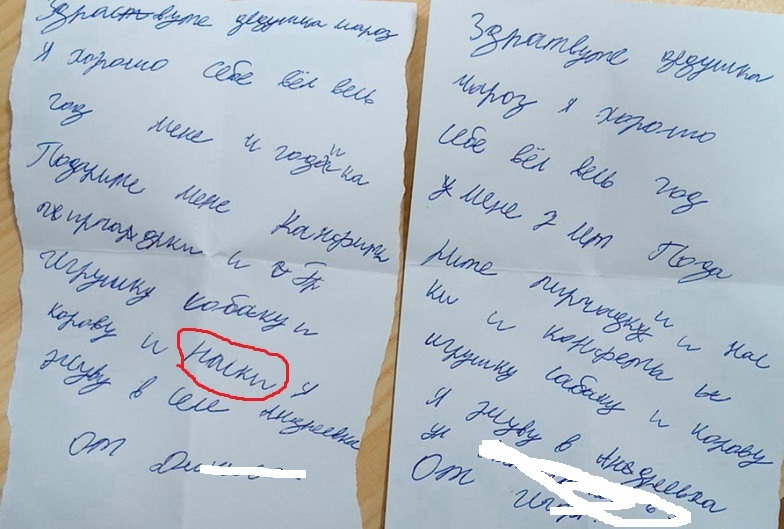 Здраствуте дедушка мароз
Я хорошо себе вёл весь
год мене и годика
Подарите мене Канфиты
и
игрушку собаку и
корову и наски я
жуву в селе Андреевка
От
Здратвуте дедушка
мароз я хорошо
себе вёл весь год
у мене 7 лет Пода
рите пирчадку и и нас
ки и конфеты и
игрушку сабаку и корову
Я жуву в Андреевка
От